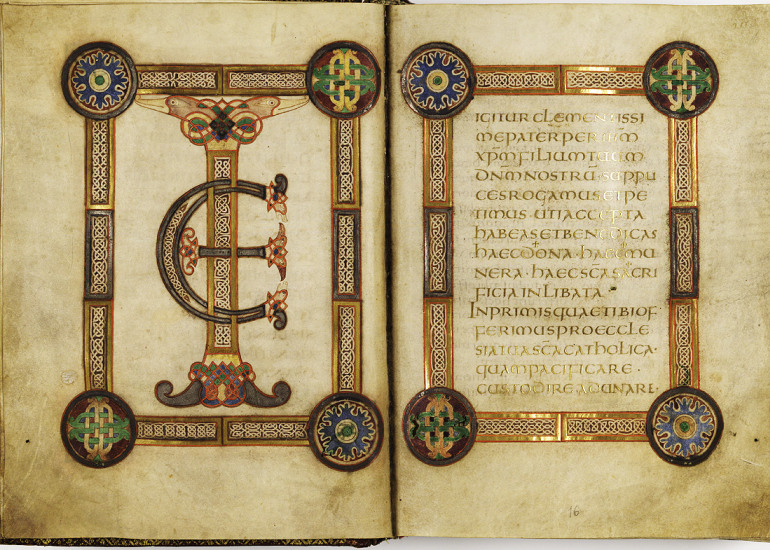 TE
IGITUR CLEMENTISSI
ME PATER PER IHM̅
XP̅M FILIUM TUUM
DN̅M NOSTRU̅ · SUPPLI
CES ROGAMUS ET PE
TIMUS · UTI ACCEPTA
HABEAS ET BENEDICAS
HAEC DONA · HAEC MU
NERA · HAEC SC̅A SACRI
FICIA INLIBATA
INPRIMIS QUAE TIBI OF
FERIMUS PRO ECCLE
SIA TUA SC̅A CATHOLICA ·
QUAM PACIFICARE ·
CUSTODIRE ADUNARE ·
16